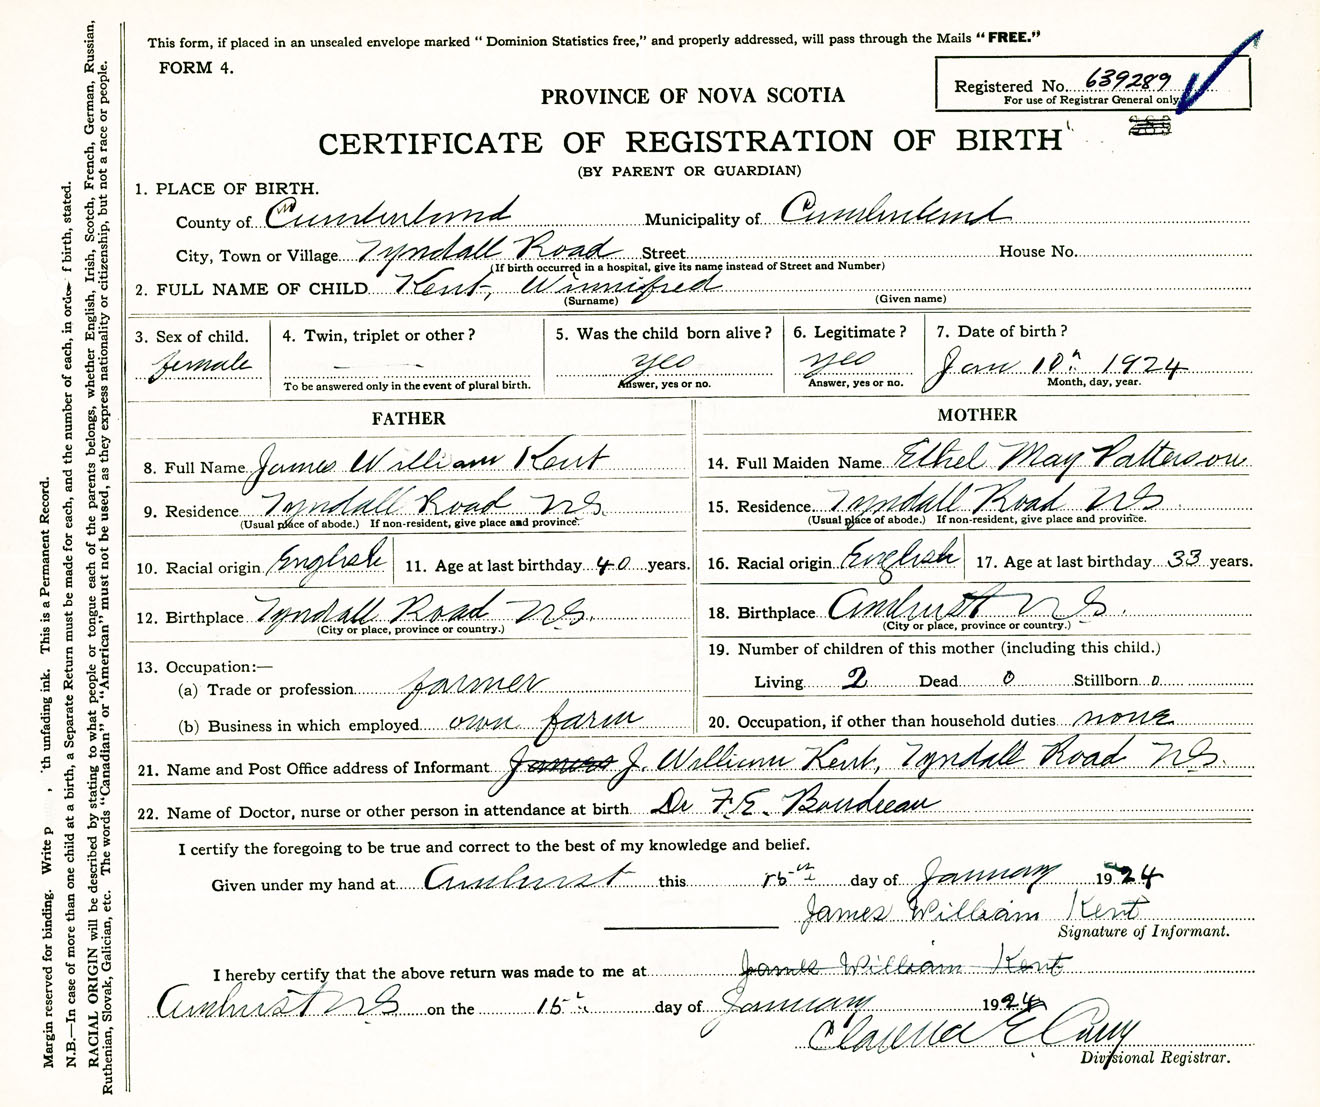 This form, if placed in an unsealed envelope marked " Dominion Statistics free," and properly addressed, will pass through the Mails "FREE."
FORM 4.
Registered No. 639289
For use of Registrar General only
PROVINCE OF NOVA SCOTIA
CERTIFICATE OF REGISTRATION OF BIRTH
(BY PARENT OR GUARDIAN)
1. PLACE OF BIRTH.
County of Cumberland Municipality of Cumberland
City, Town or Village Tyndall Road Street House No.
(If birth occurred in a hospital, give its name instead of Street and Number)
2. FULL NAME OF CHILD Kent, Winnifred
(Surname) (Given name)
3. Sex of child. 4. Twin, triplet or other? 5. Was the child born alive? 6. Legitimate? 7. Date of birth?
female — yes yes Jan 10th 1924
To be answered only in the event of plural birth. Answer, yes or no. Answer, yes or no. Month, day, year.
FATHER
8. Full Name James William Kent
9. Residence Tyndall Road NS.
(Usual place of abode.) If non-resident, give place and province.
10. Racial origin English 11. Age at last birthday 40 years.
12. Birthplace Tyndall Road NS.
(City or place, province or country.)
13. Occupation:—
(a) Trade or profession farmer
(b) Business in which employed own farm
MOTHER
14. Full Maiden Name Ethel May Patterson
15. Residence Tyndall Road NS
(Usual place of abode.) If non-resident, give place and province.
16. Racial origin English 17. Age at last birthday 33 years.
18. Birthplace Amherst NS.
(City or place, province or country.)
19. Number of children of this mother (including this child.)
Living 2 Dead 0 Stillborn 0
20. Occupation, if other than household duties none
21. Name and Post Office address of Informant James J. William Kent, Tyndall Road NS.
22. Name of Doctor, nurse or other person in attendance at birth Dr F.E. Boudreau
I certify the foregoing to be true and correct to the best of my knowledge and belief.
Given under my hand at Amherst this 15th day of January 1924
James William Kent
Signature of Informant.
I hereby certify that the above return was made to me at James William Kent
Amherst NS on the 15th day of January 1924
Clarence E Casey
Divisional Registrar.
Margin reserved for binding. Write p , 'th unfading ink. This is a Permanent Record.
N.B.—In case of more than one child at a birth, a Separate Return must be made for each, and the number of each, in order f birth, stated.
RACIAL ORIGIN will be described by stating to what people or tongue each of the parents belongs, whether English, Irish, Scotch, French, German, Russian,
Ruthenian, Slovak, Galician, etc. The words "Canadian" or "American" must not be used, as they express nationality or citizenship, but not a race or people.